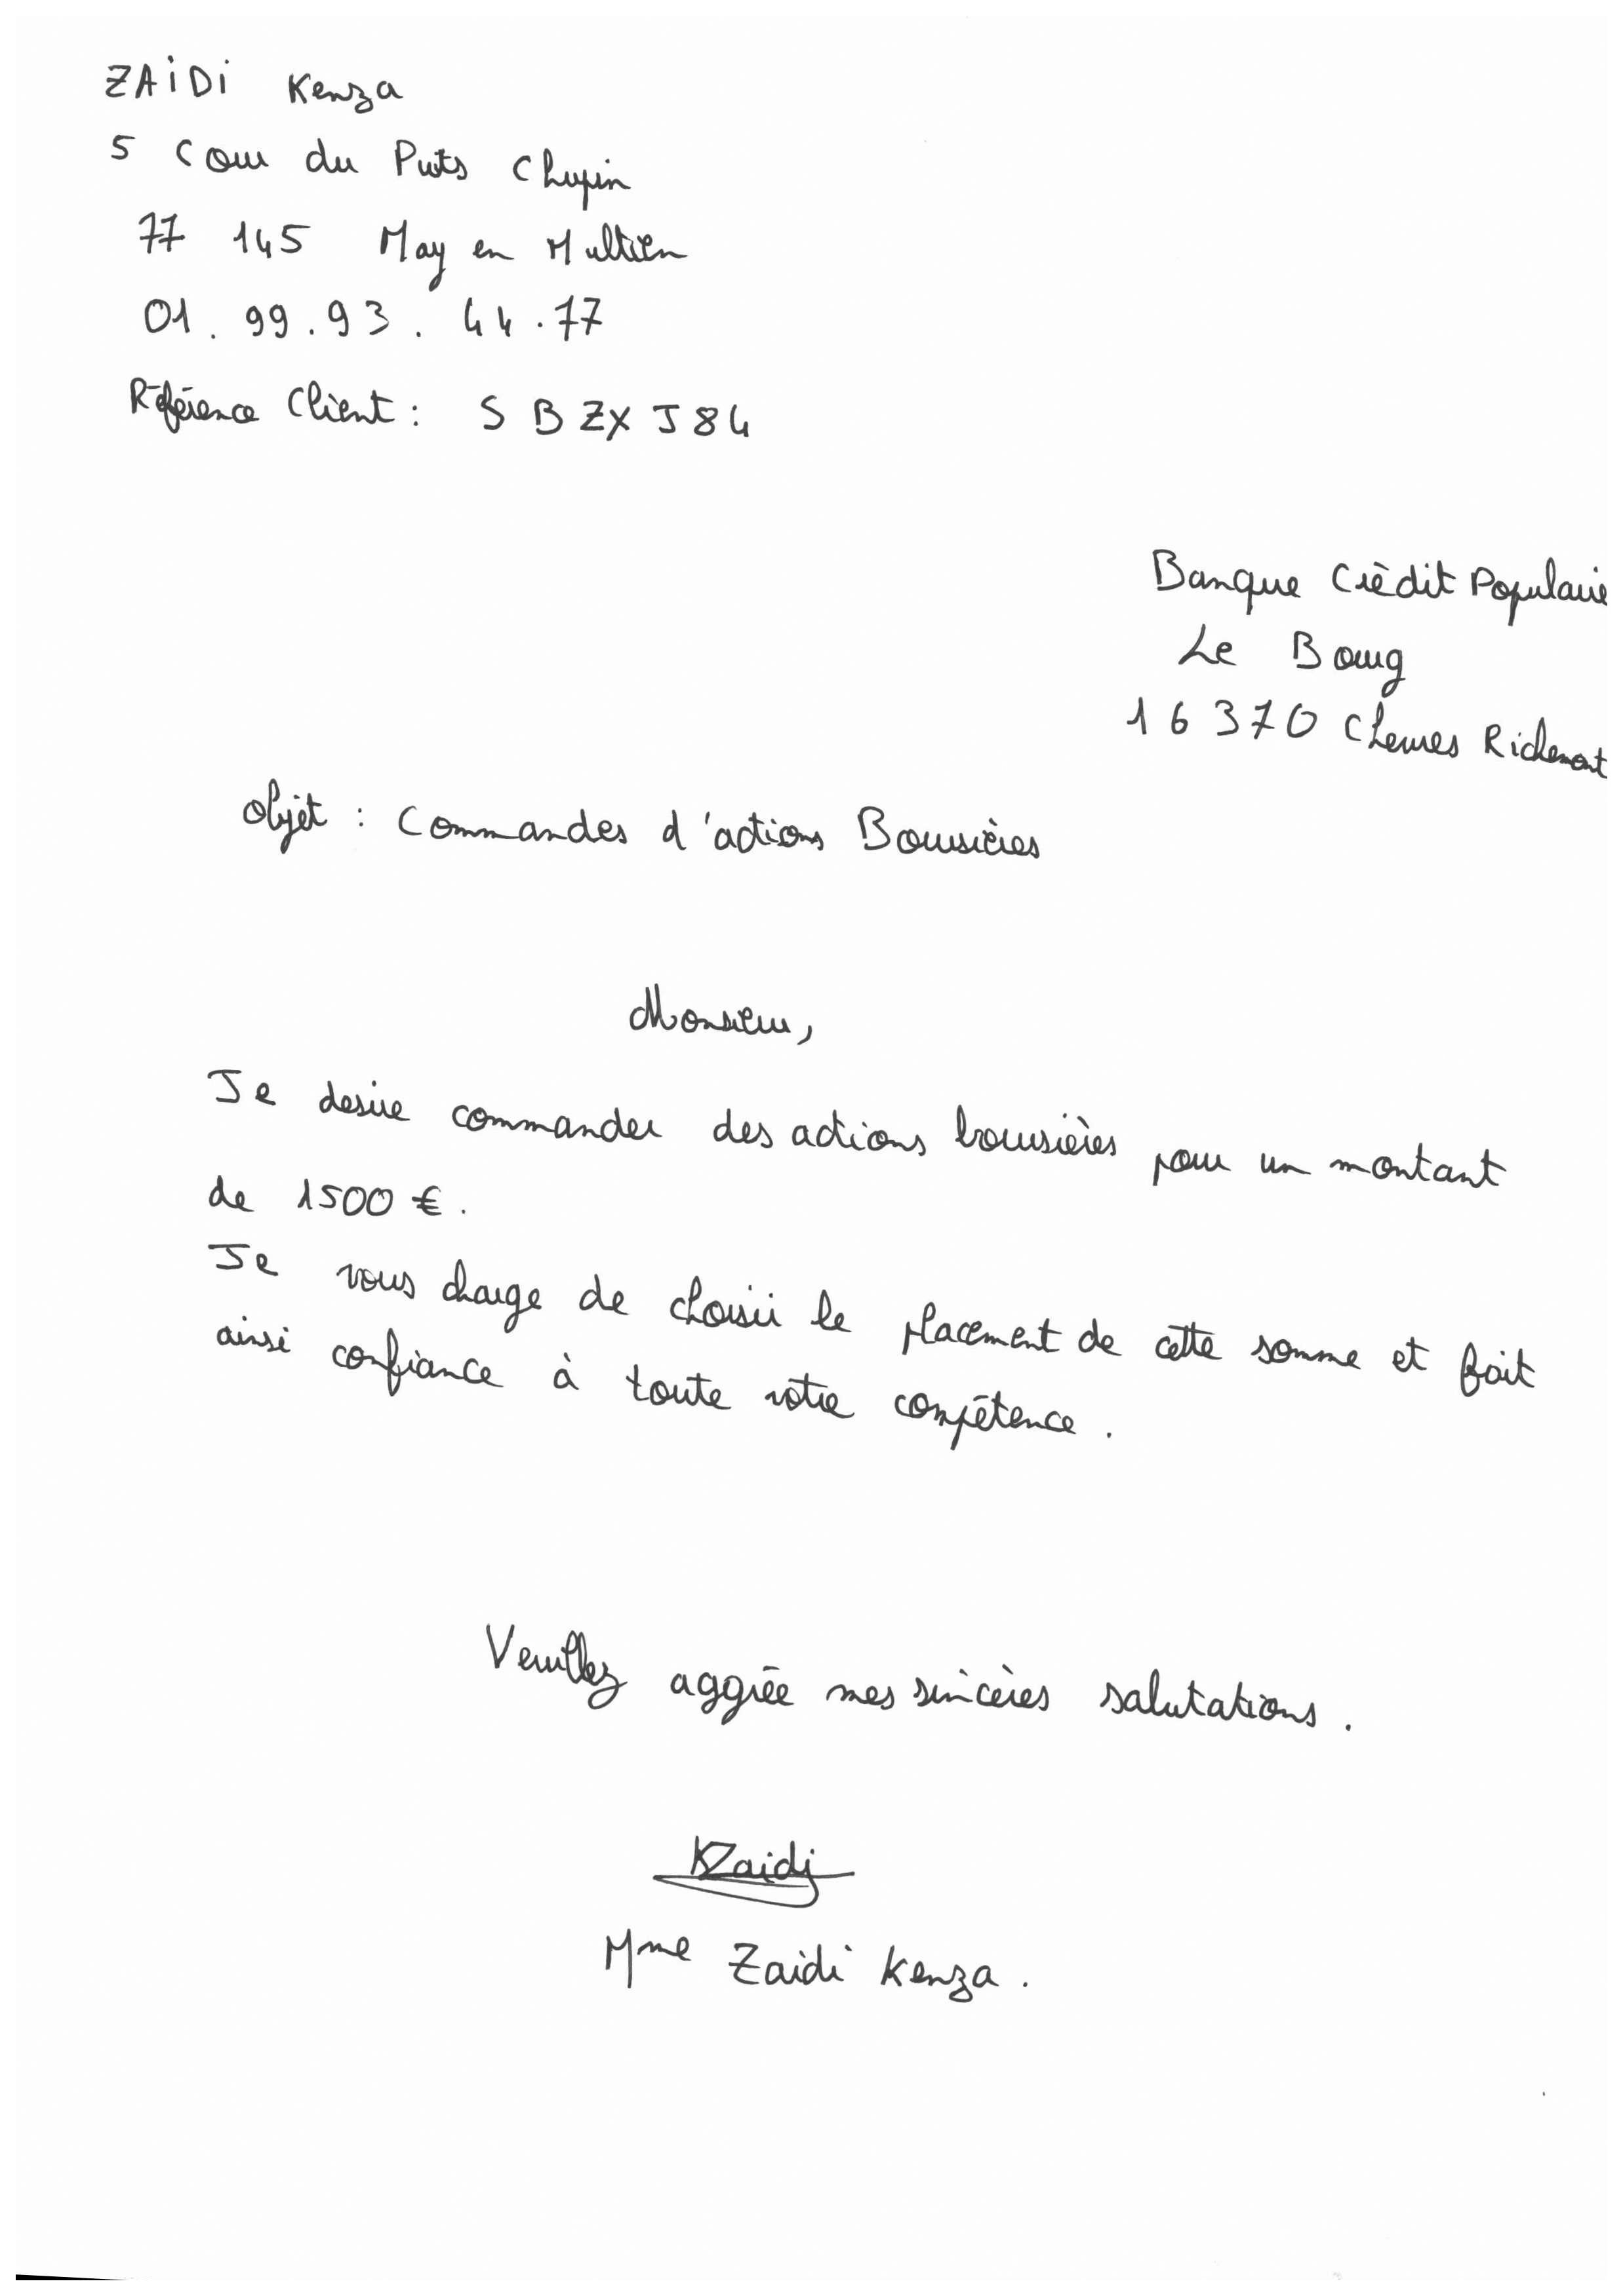 ZAiDi Kenza
5 Cour du Puits Chupin
77 145 May en Multien
01.99.93.44.77
Référence Client : SBZXJ84
Banque Crédit Populaire
Le Bourg
16370 Cherves Richemont
Objet : Commandes d'actions Boursières
Monsieur,
Je desire commander des actions boursières pour un montant
de 1500 €.
Je vous charge de choisir le placement de cette somme et fait
ainsi confiance à toute votre compétence.
Veuillez aggrée mes sincères salutations.
KZaidi
Mme Zaidi Kenza.